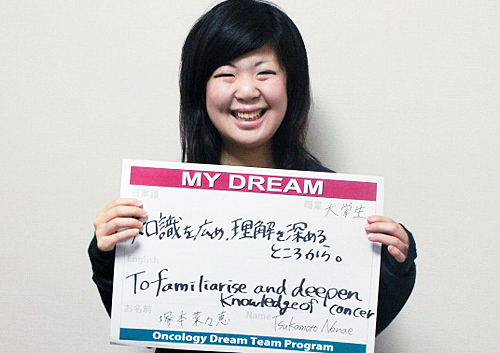 MY DREAM
日本語
職業 大学生
知識を広め、理解を深める
ところから。
English
To familiarise and deepen
knowledge of concer
お名前 塚本菜々恵 Name Tsukamoto Nanae
Oncology Dream Team Program